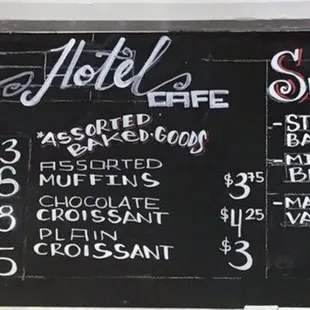 Hotel
CAFE
*ASSORTED
BAKED-GOODS
3
ASSORTED
6
MUFFINS $3.75
8
CHOCOLATE
CROISSANT $4.25
PLAIN
5
CROISSANT $3
S
- ST
BA
- MI
B
- MA
VA